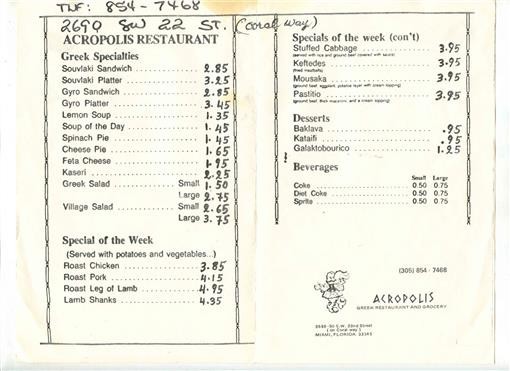 TNF: 854-7468
2690 SW 22 ST. (Coral Way)
ACROPOLIS RESTAURANT
Greek Specialties
Souvlaki Sandwich 2.85
Souvlaki Platter 3.25
Gyro Sandwich 2.85
Gyro Platter 3.45
Lemon Soup 1.35
Soup of the Day 1.45
Spinach Pie 1.45
Cheese Pie 1.65
Feta Cheese 1.95
Kaseri 2.25
Greek Salad Small 1.50
Large 2.75
Village Salad Small 2.65
Large 3.75
Special of the Week
(Served with potatoes and vegetables...)
Roast Chicken 3.85
Roast Pork 4.15
Roast Leg of Lamb 4.95
Lamb Shanks 4.35
Specials of the week (con't)
Stuffed Cabbage 3.95
(served with rice and ground beef covered with sauce)
Keftedes 3.95
(fried meatballs)
Mousaka 3.95
(ground beef, eggplant, potatoe layer with cream topping)
Pastitio 3.95
(ground beef, thick macaroni, and a cream topping)
Desserts
Baklava .95
Kataifi .95
Galaktobourico 1.25
Beverages
Small Large
Coke 0.50 0.75
Diet Coke 0.50 0.75
Sprite 0.50 0.75
(305) 854 - 7468
ACROPOLIS
GREEK RESTAURANT AND GROCERY
2688-90 S.W. 22nd Street
( on Coral way )
MIAMI, FLORIDA 33145